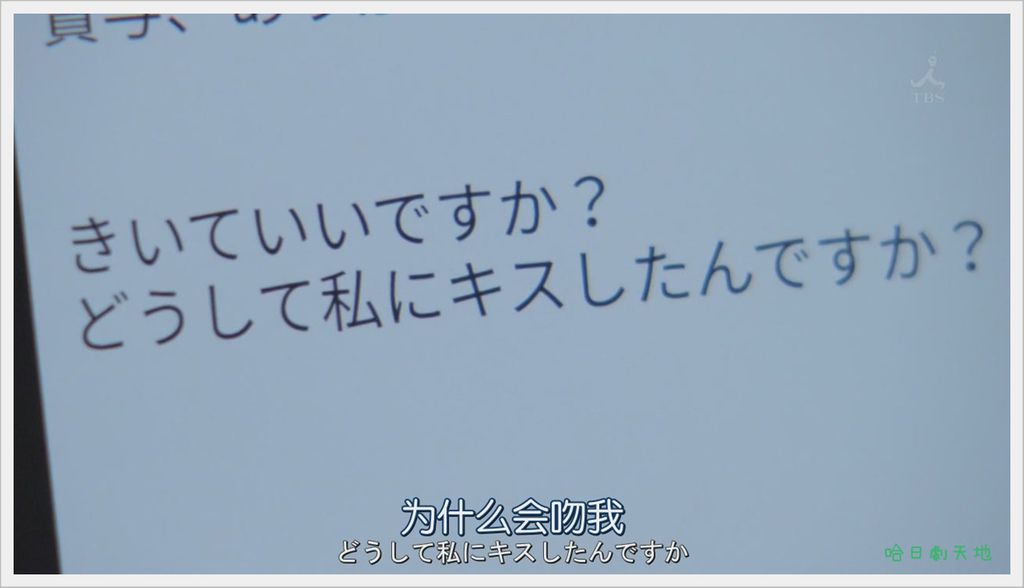 TBS
きいていいですか？
どうして私にキスしたんですか？
为什么会吻我
どうして私にキスしたんですか
哈日劇天地